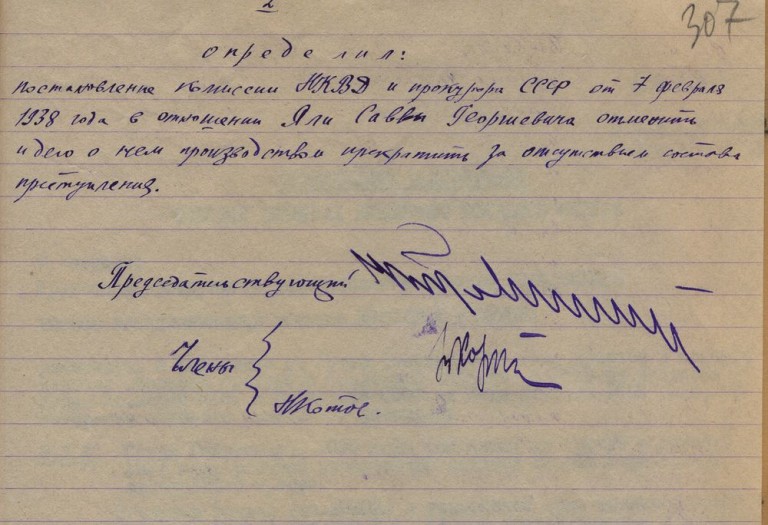 2
307
определил:
постановление комиссии НКВД и прокурора СССР от 7 февраля
1938 года в отношении Яли Саввы Георгиевича отменить
и дело о нем производством прекратить за отсутствием состава
преступления.
Председательствующий
Члены